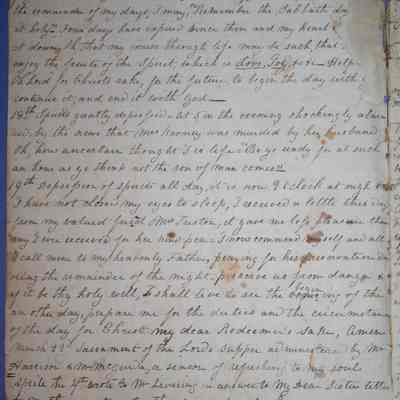 the remainder of my days, I may, "Remember the Sabbath day
it holy". Four days have expired since then and my heart
it down, Oh, that my course through life may be such, that
enjoy the fruits of the Spirit, which is Love, Joy, &c. Help
Oh Lord for Christs sake, for the future to begin the day with
continue it, and end it with God—
18th Spirits greatly depressed. at 5 in the evening shockingly alarm
ed, by the news that Mrs was murder'd by her husband
Oh, how uncertain thought I is life! Be ye ready for at such
an hour as ye think not the son of man cometh
19th Depression of spirits all day, it is now 9 Oclock at night
I have not closed my eyes to sleep, I received a little this
from my valued friend Mrs, it gave me less pleasure than
any I ever received from her kind pen. I now commend myself and all
I call mine to my heavenly Father, praying for his preservation
during the remainder of the night. preserve us from danger
if it be thy holy will, I shall live to see the begining of the
another day, prepare me for the duties and the circumstances
of the day for Christ my dear Redeemer's sake, Amen
March 22d Sacrament of the Lords Supper administered by Mr
Harrison & Mr, a season of refreshing to my soul
Aprile the 4th wrote to Mr Levering in answer to My Dear Sister